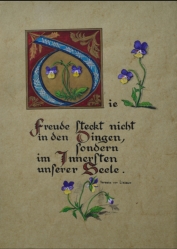 Die
Freude steckt nicht
in den Dingen,
sondern
im Innersten
unserer Seele.